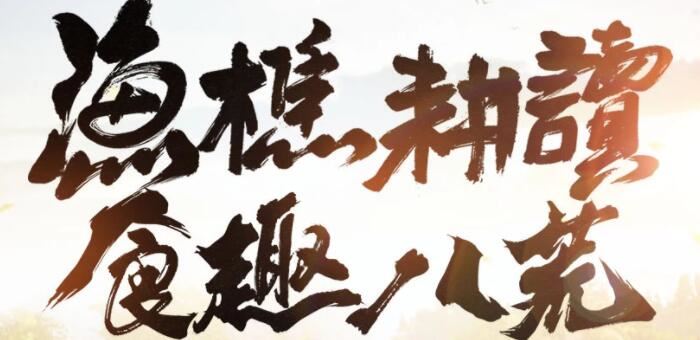 漁樵耕讀
食趣八荒